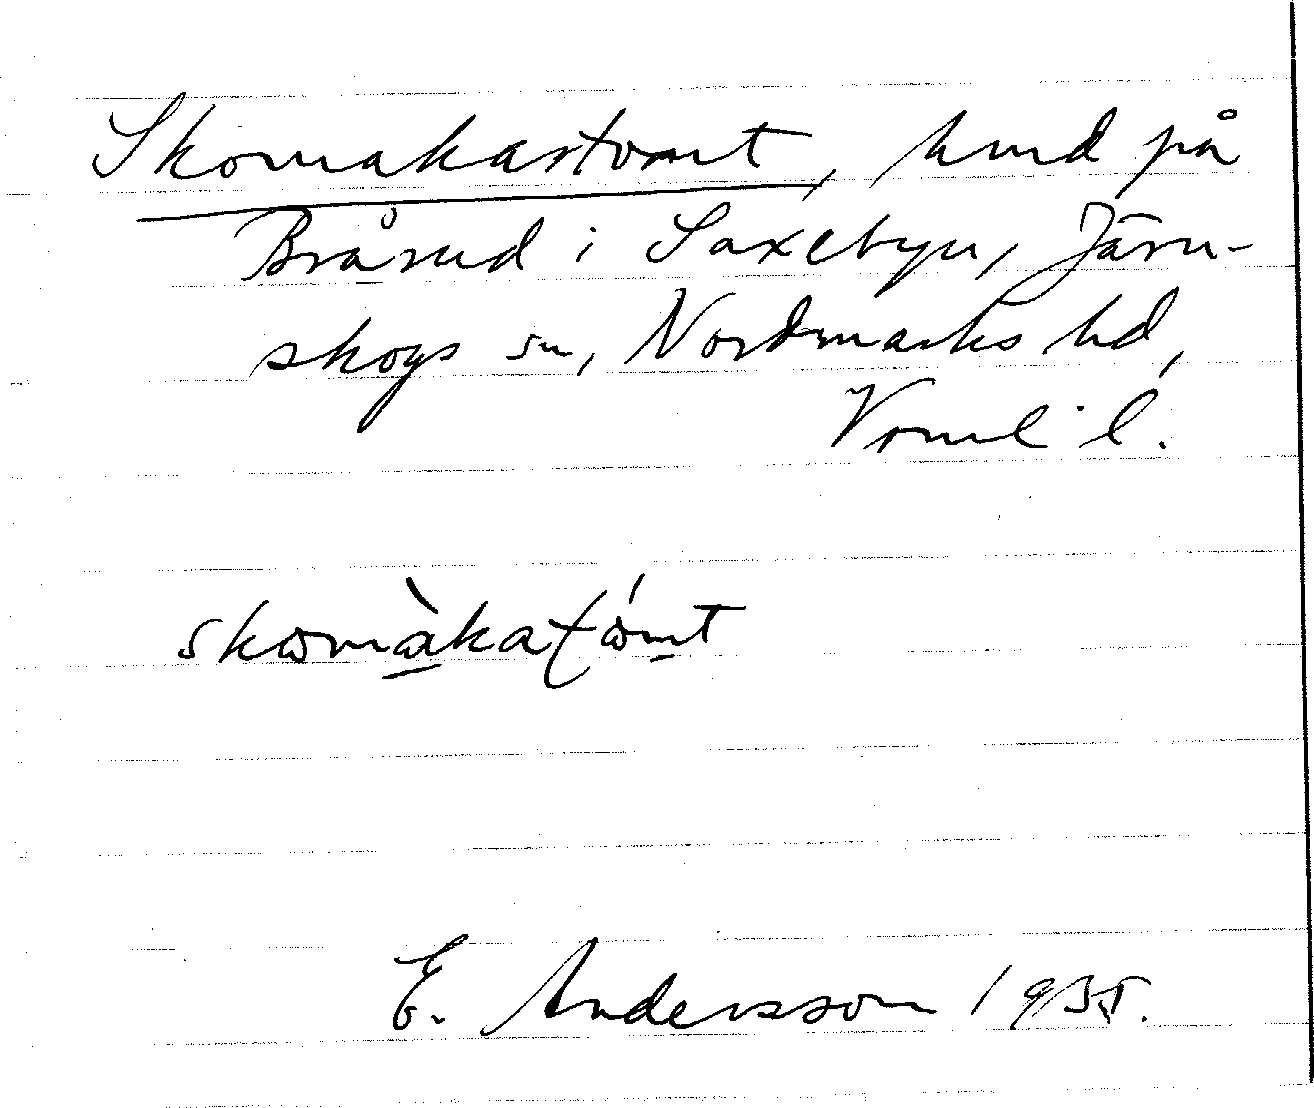 Skomakartomt, lund på
Bråned i Saxebyn, Järn-
skogs sn, Nordmarks hd,
Vrml. l.
skomàkatómt
E. Andersson 1935.